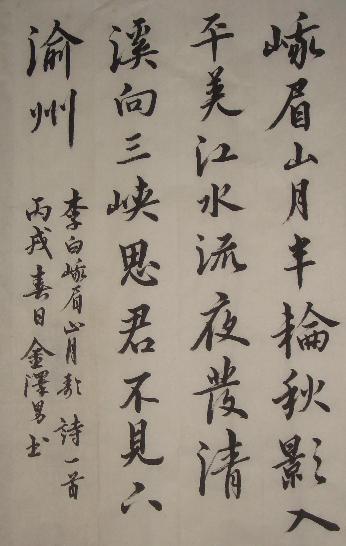 峨眉山月半輪秋影入
平羌江水流夜發清
溪向三峽思君不見下
渝州
李白峨眉山月歌詩一首
丙戌春日金澤男书